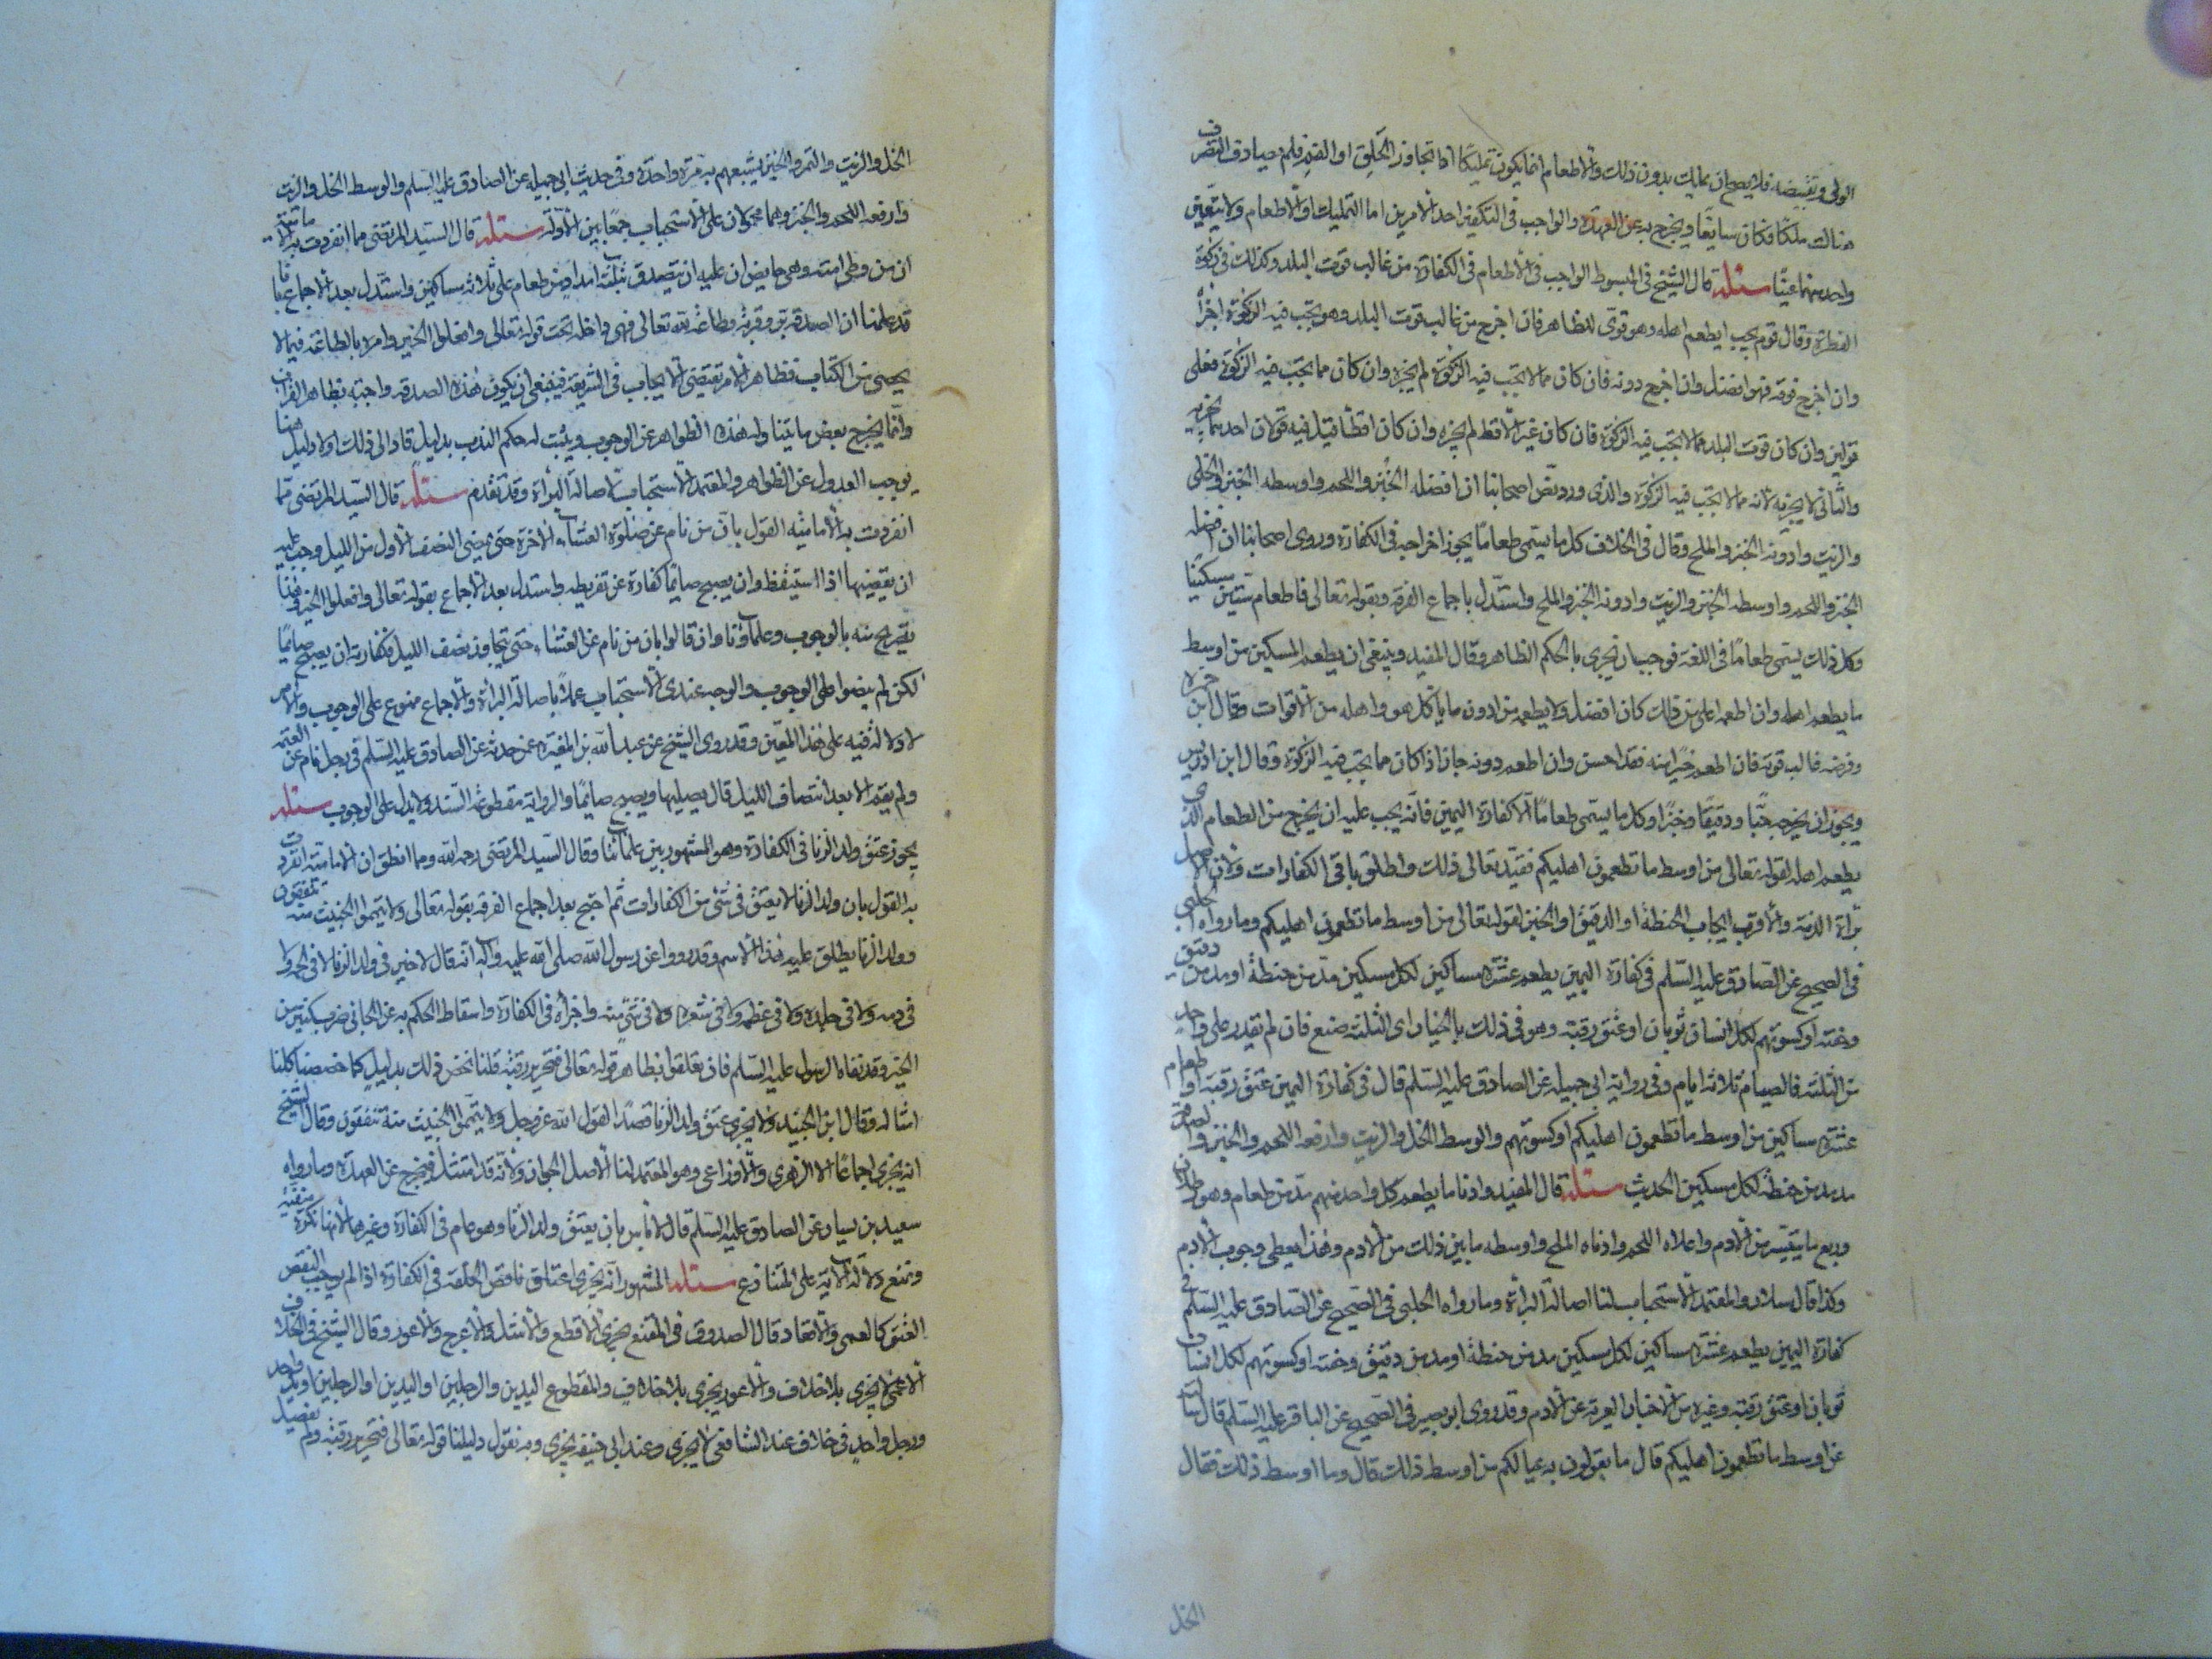 الولى وتقبيضه فلا يصح ان يملك بدون ذلك والاطعام انما يكون تمليكا اذا تجاوز الحلق او الفم فلم يصادف التصرف
هناك ملكا فكان سايغا ويخرج به عن العهدة والواجب فى التكفير احد الامرين اما التمليك او الاطعام ولا يتعين
واحد منهما عينا مسئله قال الشيخ فى المبسوط الواجب فى الاطعام فى الكفارة من غالب قوت البلد وكذلك فى زكوة
الفطرة وقال قوم يجب ما يطعم اهله وهو قوى للظاهر فان اخرج من غالب قوت البلد وهو مما يجب فيه الزكوة اجزأ
وان اخرج فوقه فهو افضل وان اخرج دونه فان كان مما لا يجب فيه الزكوة لم يجزه وان كان مما يجب فيه الزكوة فعلى
قولين وان كان قوت البلد مما لا يجب فيه الزكوة فان كان غير الاقط لم يجزه وان كان اقطا قيل فيه قولان احدهما يجزيه
والثانى لا يجزيه لانه مما لا يجب فيه الزكوة والذى ورد نص اصحابنا ان افضله الخبز واللحم واوسطه الخبز والخل
والزيت وادونه الخبز والملح وقال فى الخلاف كل ما يسمى طعاما يجوز اخراجه فى الكفارة وروى اصحابنا ان افضله
الخبز واللحم واوسطه الخبز والزيت وادونه الخبز والملح واستدل باجماع الفرقه وبقوله تعالى فاطعام ستين مسكينا
وكل ذلك يسمى طعاما فى اللغة فوجب ان يجزى بالحكم الظاهر وقال المفيد وينبغى ان يطعم المسكين من اوسط
ما يطعم اهله وان اطعمه اعلى من ذلك كان افضل ولا يطعمه من ادون ما ياكل هو واهله من الاقوات وقال ابن حمزه
وفرضه غالب قوته فان اطعم خيرا منه فقد احسن وان اطعم دونه جاز اذا كان مما يجب فيه الزكوة وقال ابن ادريس
ويجوز ان يخرج حبا ودقيقا وخبزا وكل ما يسمى طعاما الا كفارة اليمين فانه يجب عليه ان يخرج من الطعام الذى
يطعم اهله لقوله تعالى من اوسط ما تطعمون اهليكم فقيد تعالى ذلك واطلق باقى الكفارات ولان الاصل
براءة الذمة والاقرب ايجاب الحنطة او الدقيق او الخبز لقوله تعالى من اوسط ما تطعمون اهليكم وما رواه الحلبى
فى الصحيح عن الصادق عليه السلم فى كفارة اليمين يطعم عشرة مساكين لكل مسكين مد من حنطة او مد من دقيق
وحفنه او كسوتهم لكل انسان ثوبان او عتق رقبه وهو فى ذلك بالخيار اى الثلثه صنع فان لم يقدر على واحد
من الثلثه فالصيام ثلاثه ايام وفى رواية ابى جميله عن الصادق عليه السلم قال فى كفارة اليمين عتق رقبه او اطعام
عشرة مساكين من اوسط ما تطعمون اهليكم او كسوتهم والوسط الخل والزيت وارفعه اللحم والخبز والصدقة
مد مد من حنطة لكل مسكين الحديث مسئله قال المفيد وادنا ما يطعم كل واحد منهم مد من طعام وهو رطلان
وربع ما يتيسر من الادم واعلاه اللحم وادناه الملح واوسطه ما بين ذلك من الادم وهذا يعطى وجوب الادم
وكذا قال سلار والمعتمد الاستحباب لنا اصالة البراءة وما رواه الحلبى فى الصحيح عن الصادق عليه السلم فى
كفارة اليمين يطعم عشرة مساكين لكل مسكين مد من حنطة او مد من دقيق وحفنه او كسوتهم لكل انسان
ثوبان او عتق رقبه وغيره من الاخبار العريه عن الادم وقد روى ابو بصير فى الصحيح عن الباقر عليه السلم قال سالته
عن اوسط ما تطعمون اهليكم قال ما تقولون به عيالكم من اوسط ذلك قال وما اوسط ذلك فقال
الخل
الخل والزيت والتمر والخبز يشبعهم به مرة واحدة وفى حديث ابى جميله عن الصادق عليه السلم والوسط الخل والزيت
وارفعه اللحم والخبز وهما محمولان على الاستحباب جمعا بين الادلة مسئله قال السيد المرتضى مما انفردت به الامامية
ان من وطى امته وهى حايض ان عليه ان يتصدق بثلثة امداد من طعام على ثلاثه مساكين واستدل بعد الاجماع بانا
قد علمنا ان الصدقه بر وقربة وطاعة لله تعالى فهى داخله تحت قوله تعالى وافعلوا الخير وامره بالطاعة فيما لا
يحصى من الكتاب فظاهر الامر يقتضى الايجاب فى الشريعة فينبغى ان يكون هذه الصدقه واجبه بظاهر القران
وانما يخرج بعض ما يتناوله هذه الظواهر عن الوجوب ويثبت له حكم الندب بدليل قاد الى ذلك ولا دليل هنا
يوجب العدول عن الظواهر والمعتمد الاستحباب لاصالة البراءة وقد تقدم مسئله قال السيد المرتضى مما
انفردت به الامامية القول بان من نام عن صلوة العشاء الاخرة حتى يمضى النصف الاول من الليل وجب عليه
ان يقضيها اذا استيقظ وان يصبح صائما كفارة عن تفريطه واستدل بعد الاجماع بقوله تعالى وافعلوا الخير وهذا
تصريح منه بالوجوب وعلماؤنا وان قالوا بان من نام عن العشاء حتى يتجاوز نصف الليل فكفارته ان يصبح صايما
لكن لم ينصوا على الوجوب والوجه عندى الاستحباب عملا باصالة البراءة والاجماع ممنوع على الوجوب والامر
لا دلالة فيه على هذا المعين وقد روى الشيخ عن عبدالله بن المغيره عمن حدثه عن الصادق عليه السلم فى رجل نام عن العتمة
ولم يقم الا بعد انتصاف الليل قال يصليها ويصبح صائما والرواية مقطوعة السند ولا يدل على الوجوب مسئله
يجوز عتق ولد الزنا فى الكفارة وهو المشهور بين علمائنا وقال السيد المرتضى رحمه الله ومما انطق ان الامامية انفردت
به القول بان ولد الزنا لا يعتق فى شئ من الكفارات ثم احتج بعد اجماع الفرقه بقوله تعالى ولا تيمموا الخبيث منه تنفقون
وولد الزنا يطلق عليه هذا الاسم وقد رووا عن رسول الله صلى الله عليه واله انه قال لا خير فى ولد الزنا لا فى لحمه ولا
فى دمه ولا فى جلده ولا فى عظمه ولا فى شعره ولا فى شئ منه واجزاؤه فى الكفارة واسقاط الحكم به عن الجانى ضرب كثير من
الخير وقد نفاه الرسول عليه السلم فان تعلقوا بظاهر قوله تعالى فتحرير رقبة قلنا نخص ذلك بدليل كما خصصنا كلنا
امثاله وقال ابن الجنيد ولا يجزى عتق ولد الزنا قصدا لقول الله عز وجل ولا تيمموا الخبيث منه تنفقون وقال الشيخ
انه يجزى اجماعا الا الزهرى والاوزاعى وهو المعتمد لنا الاصل الجواز ولانه قد امتثل فيخرج عن العهدة وما رواه
سعيد بن يسار عن الصادق عليه السلم قال لا باس بان يعتق ولد الزنا وهو عام فى الكفارة وغيرها لانها نكرة منفية
ونمنع دلالة الاية على المتنازع مسئله المشهور انه يجزى اعتاق ناقص الخلقه فى الكفارة اذا لم يوجب النقص
العتق كالعمى والاقعاد قال الصدوق فى المقنع يجزى الاقطع والاشل والاعرج والاعور وقال الشيخ فى الخلاف
الاعمى لا يجزى بلا خلاف والاعور يجزى بلا خلاف والمقطوع اليدين والرجلين او اليدين او الرجلين او يد واحد
ورجل واحد فى خلاف عند الشافعى لا يجزى وعند ابى حنيفه يجزى وبه نقول دليلنا قوله تعالى فتحرير رقبة ولم يفصل